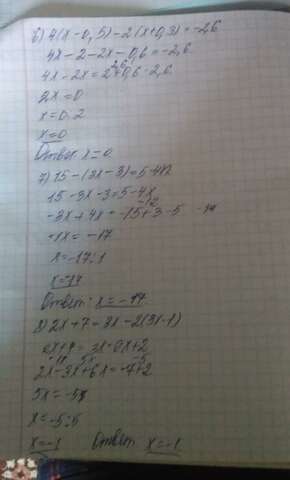 6) 4(x-0,5)-2(x+0,3)=-2,6
4x-2-2x-0,6=-2,6
4x-2x=2+0,6-2,6
2x=0
x=0:2
x=0
Ответ: x=0
7) 15-(3x-3)=5-4x
15-3x-3=5-4x
-3x+4x=-15+3-5
-1x=-17
x=-17:1
Ответ: x=-17
8) 2x+7=3x-2(3x-1)
2x-3x+6x=-7+2
5x=-5
x=-5:5
x=-1 Ответ: x=-1